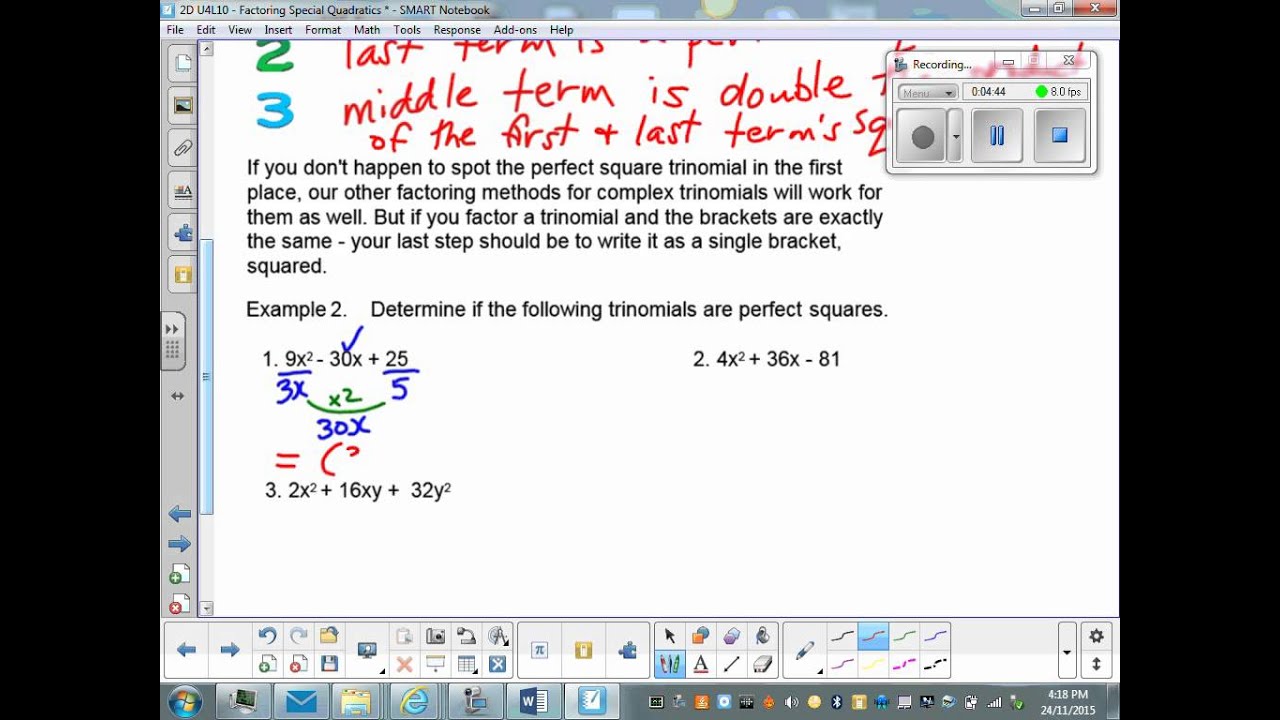 2D U4L10 - Factoring Special Quadratics * - SMART Notebook
File Edit View Insert Format Math Tools Response Add-ons Help
Recording...
Menu 0:04:44 8.0 fps
2 last term is a
3 middle term is double
of the first + last term's
If you don't happen to spot the perfect square trinomial in the first
place, our other factoring methods for complex trinomials will work for
them as well. But if you factor a trinomial and the brackets are exactly
the same - your last step should be to write it as a single bracket,
squared.
Example 2. Determine if the following trinomials are perfect squares.
1. 9x² - 30x + 25
2. 4x² + 36x - 81
3x x2 5
30x
= (
3. 2x² + 16xy + 32y²
π
A
4:18 PM
24/11/2015